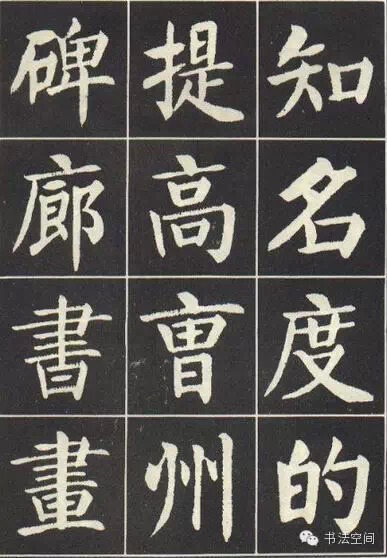 知名度的
提高曺州
碑廊書畫
书法空间